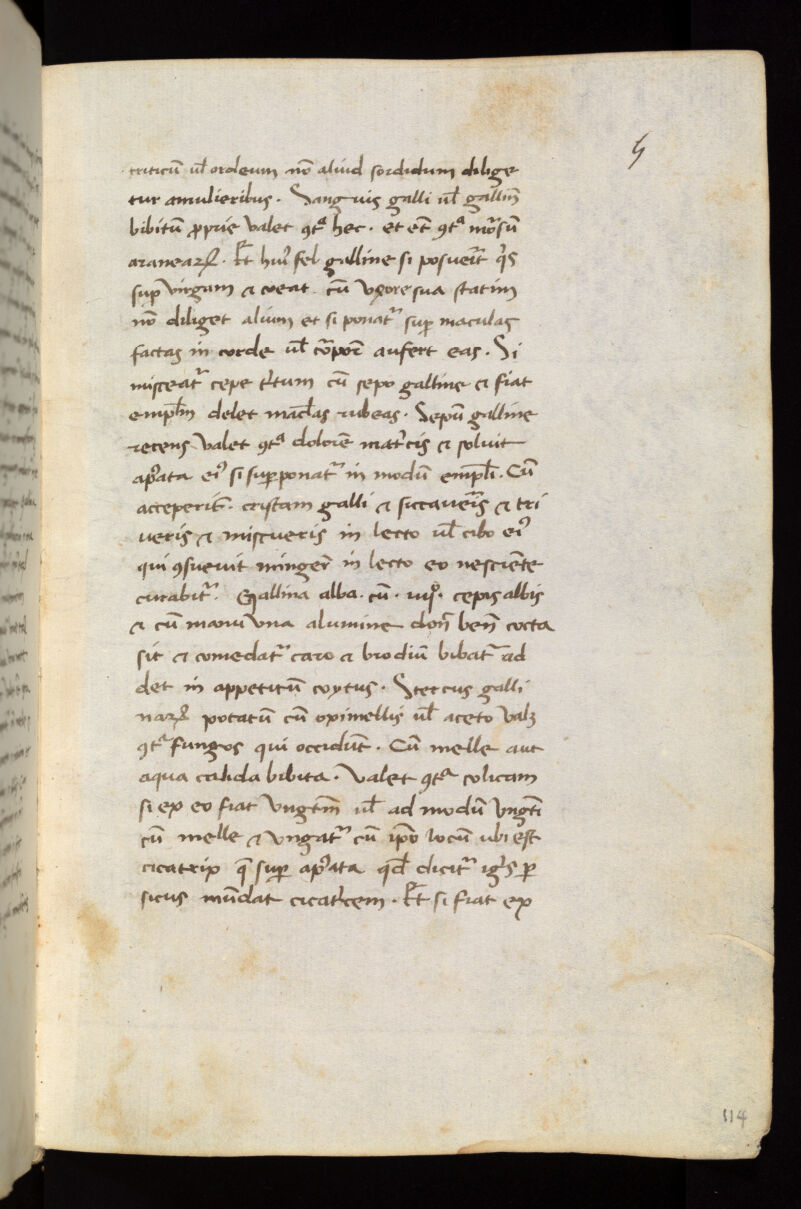 5
triticũ ul̃ ordeum nõ aliud sordidum dilige
tur amulieribus. Sanguis galli ul̃ gallinẽ
bibitũ pprie valet 9tᵃ hec. et etẽ 9tᵃ morsũ
aranearꝝ. Et huiꝰ fel galline si posuerit qis
sup virgam & coeat cũ uxore sua statim
nõ diliget alium et si ponatᷣ sup maculas
factas in corde ul̃ corpore aufert eas. Si
misceatᷣ cepe tritum cũ sepo galline & fiat
emplm̃ delet maculas rubeas. Sepũ galline
recens valet 9tᵃ dolorẽ matricis & soluit
apostata eiꝰ si supponatᷣ in modũ empli. Cũ
acceperis. cristam galli & siccaueris & tri
ueris & miscueris in lecto ul̃ cibo eiꝰ
qui 9sueuit minger̃ in lecto eo nesciẽte
curabitᷣ. Gallina alba. cũ. cepis albis
& cũ manu una alumine donc̃ ben̄ cocta
sit & comedatᷣ caro & brodiũ bibatᷣ ad
det in appetitũ coytus. Stercus galli
narꝝ potatũ cũ oximellis ul̃ aceto valꝫ
9tᵃ fungos qui occidũt. Cũ melle aut
aqua calida bibita. Valet 9tᵃ colicam
si ex eo fiat vngtm̃ ul̃ ad modũ vngti
cũ melle & vngatᷣ cũ ipõ locũ ubi est
cicatrix q̃ sup apostata qd̃ dicitᷣ ignis p
sicus mũdat cicatricem. Et si fiat ex
114